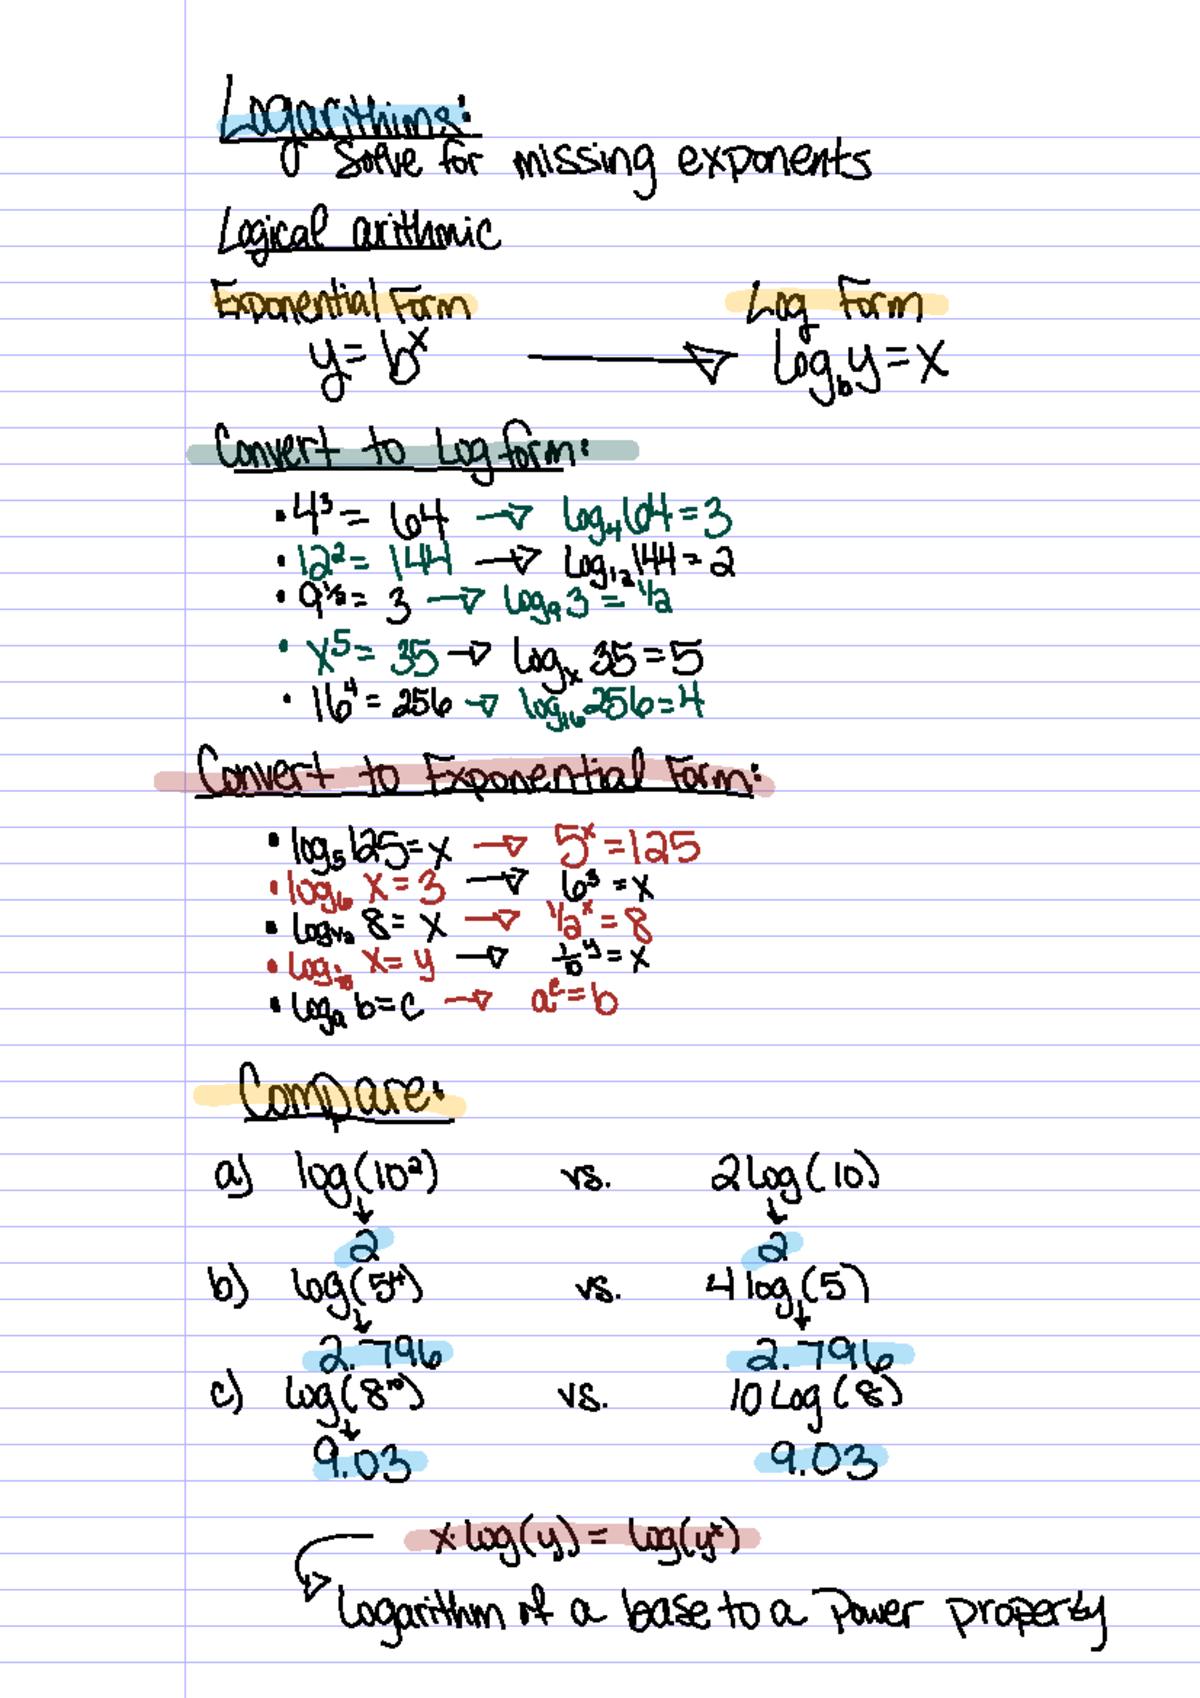 Logarithims:
↳ Solve for missing exponents
Logical arithmic
Exponential Form Log Form
y = bˣ → log_b y = x
Convert to Log form:
• 4³ = 64 → log₄ 64 = 3
• 12² = 144 → log₁₂ 144 = 2
• 9^½ = 3 → log₉ 3 = ½
• x⁵ = 35 → log_x 35 = 5
• 16⁴ = 256 → log₁₆ 256 = 4
Convert to Exponential Form:
• log₅ 125 = x → 5ˣ = 125
• log₆ x = 3 → 6³ = x
• log_½ 8 = x → ½ˣ = 8
• log_1/10 x = y → 1/10^y = x
• log_a b = c → a^c = b
Compare:
a) log(10²) vs. 2 log(10)
↓ ↓
2 2
b) log(5⁴) vs. 4 log(5)
↓ ↓
2.796 2.796
c) log(8¹⁰) vs. 10 Log(8)
↓
9.03 9.03
x·log(y) = log(yˣ)
Logarithm of a base to a Power property